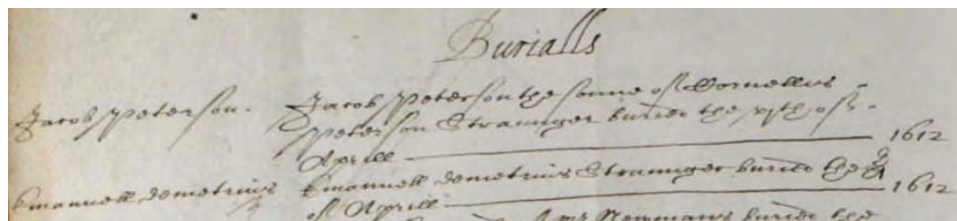 Burialls
Jacob Peterson. Jacob Peterson the sonne of Cornellus
Peterson Straunger buried the xvjth of
Aprill 1612
Emanuell demetrius Emanuell demetrius Straunger buried the
of Aprill 1612
buried the